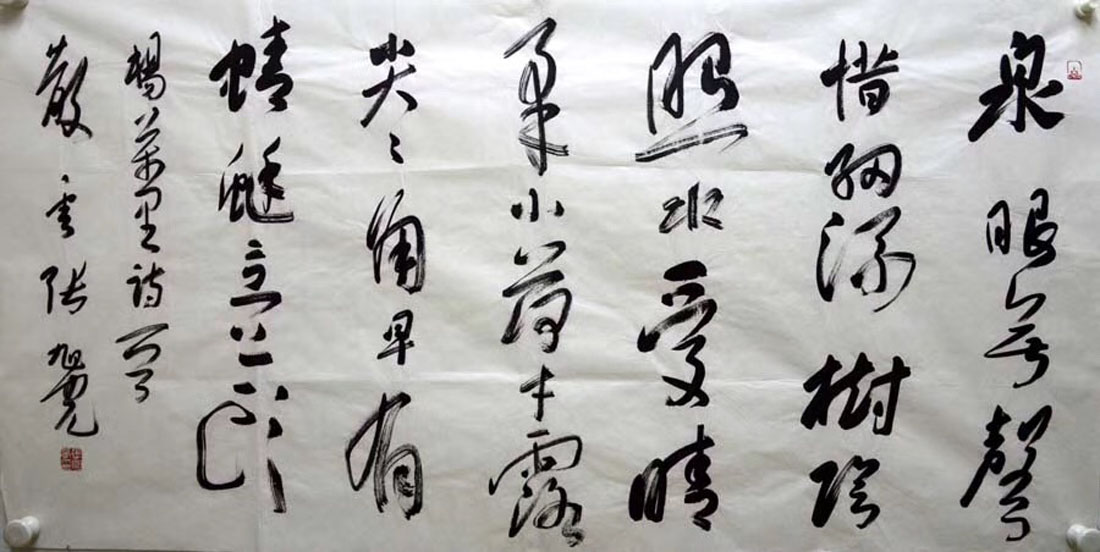 泉眼無聲
惜細流樹陰
照水愛晴
柔小荷才露
尖々角早有
蜻蜓立上頭
楊萬里詩
雲張旭